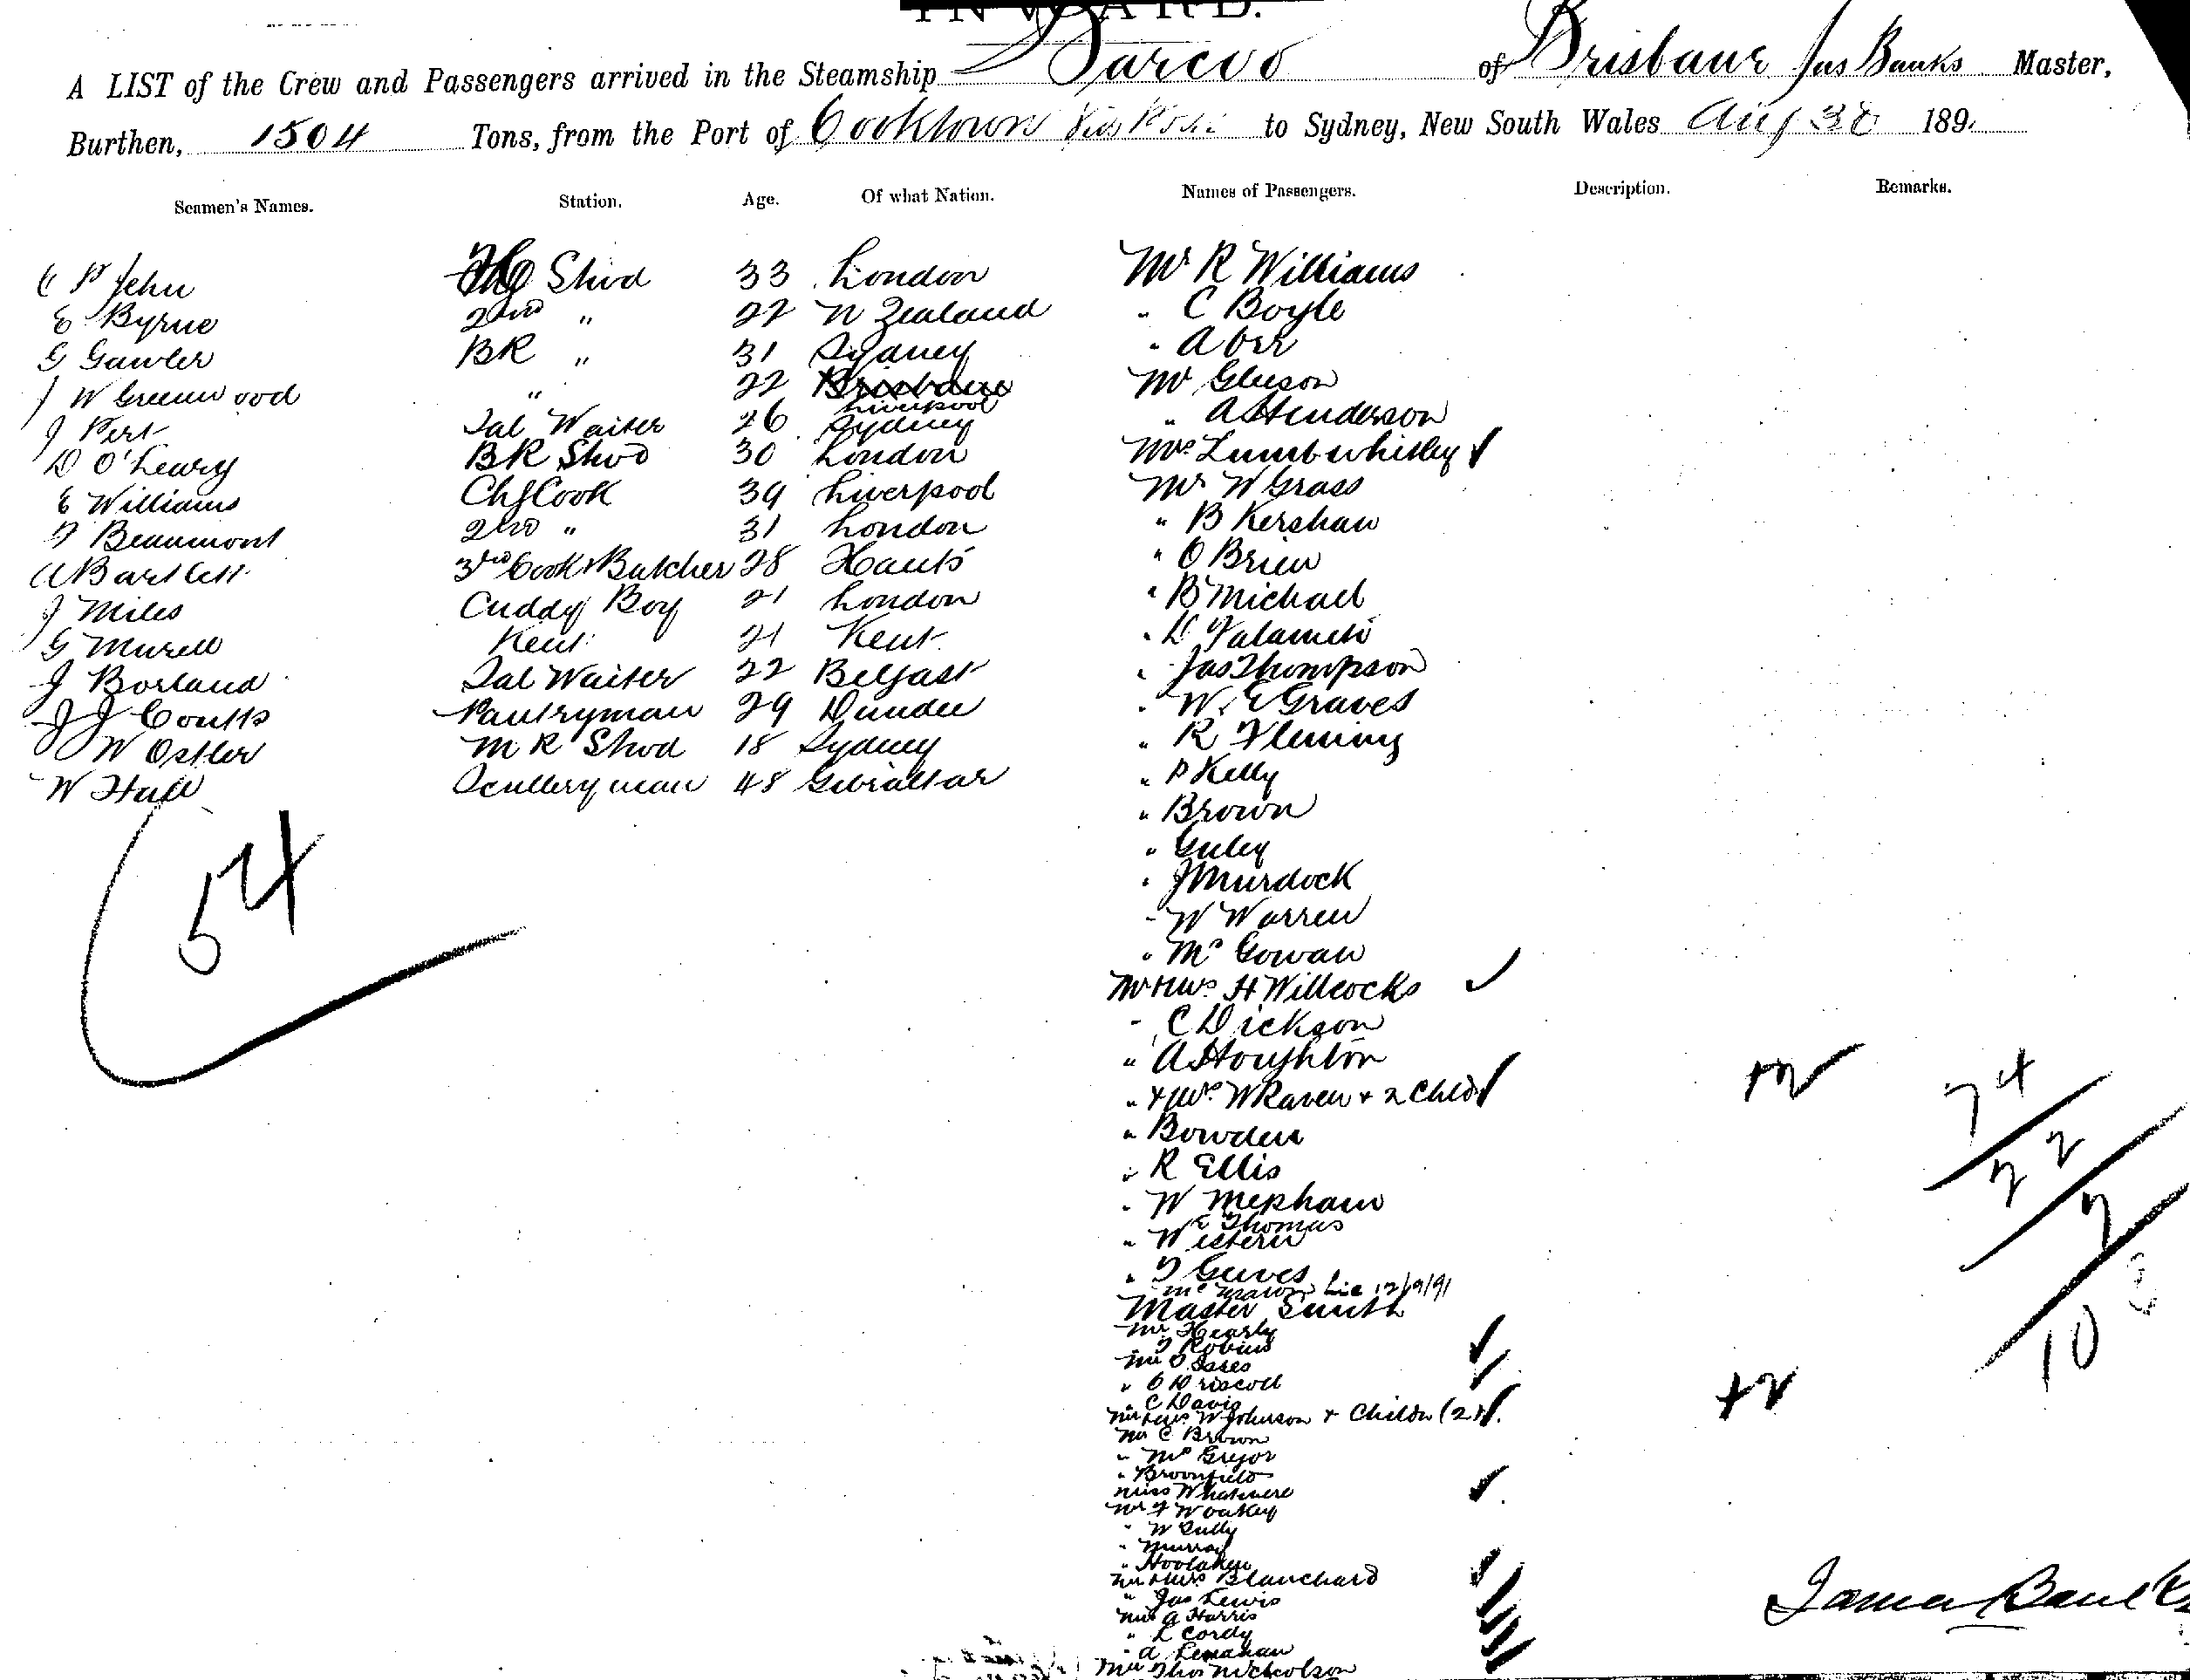 INWARD.
A LIST of the Crew and Passengers arrived in the Steamship Barcoo of Brisbane Jas Banks Master,
Burthen, 1504 Tons, from the Port of Cooktown Via to Sydney, New South Wales Aug 30 189
Seamen's Names. Station. Age. Of what Nation. Names of Passengers. Description. Remarks.
C P Jehu Stwd 33 London Mr R Williams
E Byrne 2nd " 22 N Zealand " C Boyle
G Gawler BR " 31 Sydney " A Orr
J W Greenwood " 22 Brisbane Liverpool Mr Gleeson
J Pert Sal Waiter 26 Sydney " A Henderson
D O'Leary BR Stwd 30 London Mrs Lumb
E Williams Chf Cook 39 Liverpool Mr W Grass
F Beaumont 2nd " 31 London " B Kershaw
A Bartlett 3rd Cook & Butcher 28 Hants " O Brien
J Miles Cuddy Boy 21 London " B Michael
G Murell Kent 21 Kent " D
J Borland Sal Waiter 22 Belfast " Jas Thompson
J J Coutts Pantryman 29 Dundee " W E Graves
W Ostler M R Stwd 18 Sydney " R Fleming
W Hall Scullery man 48 Gibraltar " P Kelly
" Brown
54
" J Murdock
" W Warren
" Mc Gowan
Mr & Mrs H Willcocks
" C Dickson
" A Houghton
" & Mrs W Raven & 2 Chld
+2
74
" Bowden
22
" R Ellis
7
" W Mepham
" W E Thomas
" Western
" T Geeves
10
12/9/91
Master Smith
Mr Hearly
" T Robins
" O Driscoll
" C Davis
Mr & Mrs W Johnson & Childn (2)
+2
Mr C Brown
" Mc Gregor
" Broomfield
Miss Whatmere
Mr F W Oakey
" W Tully
" Murray
" Hoolahan
Mr & Mrs Blanchard
" Jas Lewis
James Banks
Mrs A Harris
" L Cordy
" A Lenahan
Thos Nicholson